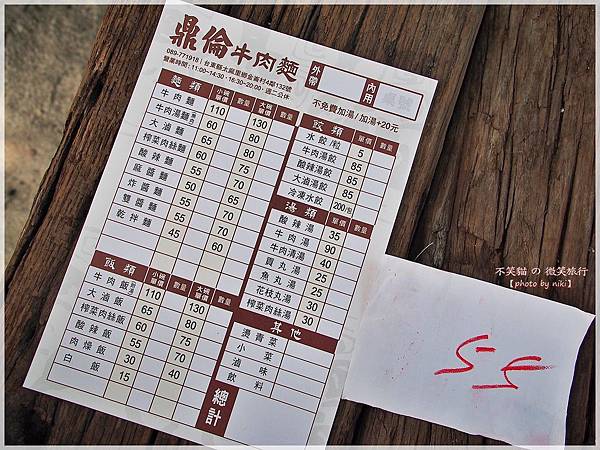 鼎倫牛肉麵
089-771918 | 台東縣太麻里鄉金崙村4鄰132號
營業時間:11:00~14:30,16:30~20:00,週二公休
外帶 內用 桌號
不免費加湯/加湯+20元
麵類 小碗單價 數量 大碗單價 數量
牛肉麵 110 130
牛肉湯麵 60 80
大滷麵 65 80
榨菜肉絲麵 60 75
酸辣麵 55 70
麻醬麵 45
炸醬麵 55 70
雙醬麵 55
乾拌麵 45 60
飯類 小碗單價 數量 大碗單價 數量
牛肉飯 110 130
大滷飯 65 80
榨菜肉絲飯 60 75
酸辣飯 55 70
肉燥飯 30 40
白飯 15
總計
餃類 單價 數量
水餃/粒 5
牛肉湯餃 85
酸辣湯餃 85
大滷湯餃 85
冷凍水餃 200/包
湯類 單價 數量
酸辣湯 35
牛肉湯 90
牛肉清湯 40
貢丸湯 25
魚丸湯
花枝丸湯 30
榨菜肉絲湯 30
其他
燙青菜
小菜
滷味
飲料
不笑貓 の 微笑旅行
【photo by niki】
55